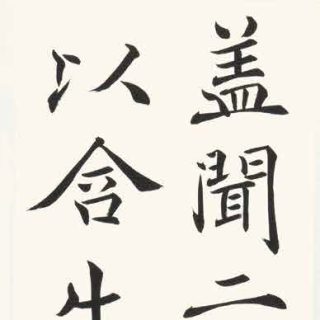 盖聞二
以含生